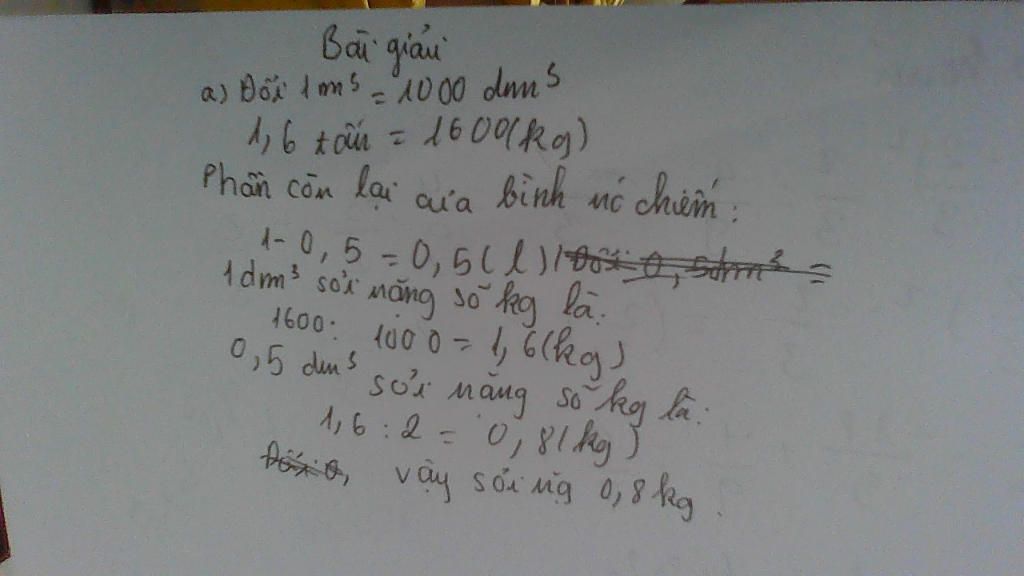 Bài giải
a) Đổi 1m³ = 1000 dm³
1,6 tấn = 1600(kg)
Phần còn lại của bình nó chiếm:
1- 0,5 = 0,5(l) Đổi 0,5dm³ =
1dm³ sỏi nặng số kg là:
1600: 1000 = 1,6(kg)
0,5 dm³ sỏi nặng số kg là:
1,6 : 2 = 0,8(kg)
Đổi 0, vậy sỏi nặng 0,8 kg.